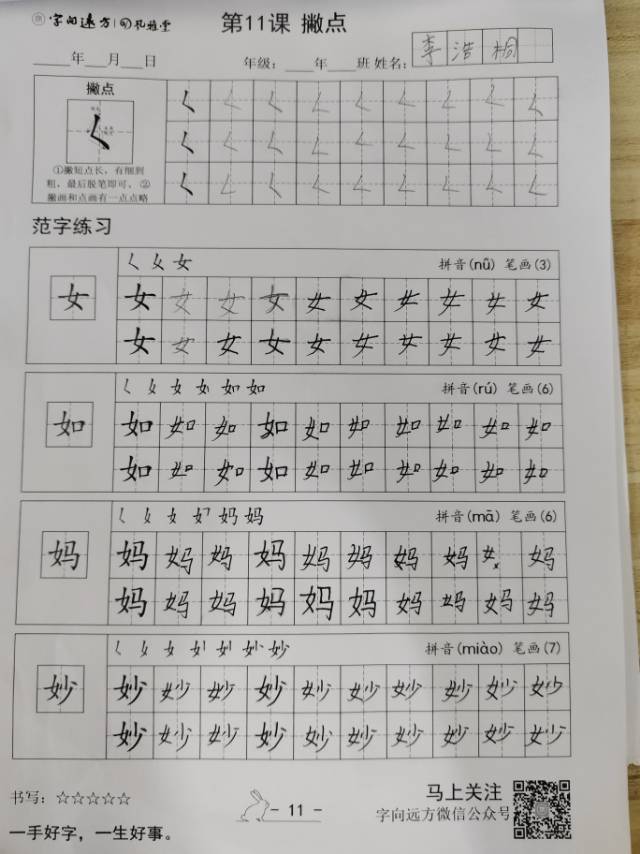 字向远方 孔雅堂 第11课 撇点
年 月 日 年级： 年 班 姓名： 李 浩 桐
撇点
①撇短点长，有细到
粗，最后脱笔即可。②
撇画和点画有一点点略
范字练习
女 拼音(nǚ) 笔画(3)
女 女 女 女 女 女 女 女 女 女 女
女 女 女 女 女 女 女 女 女 女
女 如 如 拼音(rú) 笔画(6)
如 如 如 如 如 如 如 如 如 如 如
如 如 如 如 如 如 如 如 如 如
女 妈 妈 拼音(mā) 笔画(6)
妈 妈 妈 妈 妈 妈 妈 妈 妈 女 妈
妈 妈 妈 妈 妈 妈 妈 妈 妈 妈
女 妙 拼音(miào) 笔画(7)
妙 妙 妙 妙 妙 妙 妙 妙 妙 妙 妙
妙 妙 妙 妙 妙 妙 妙 妙 妙 妙
书写：☆☆☆☆☆
一手好字，一生好事。
- 11 -
马上关注
字向远方微信公众号